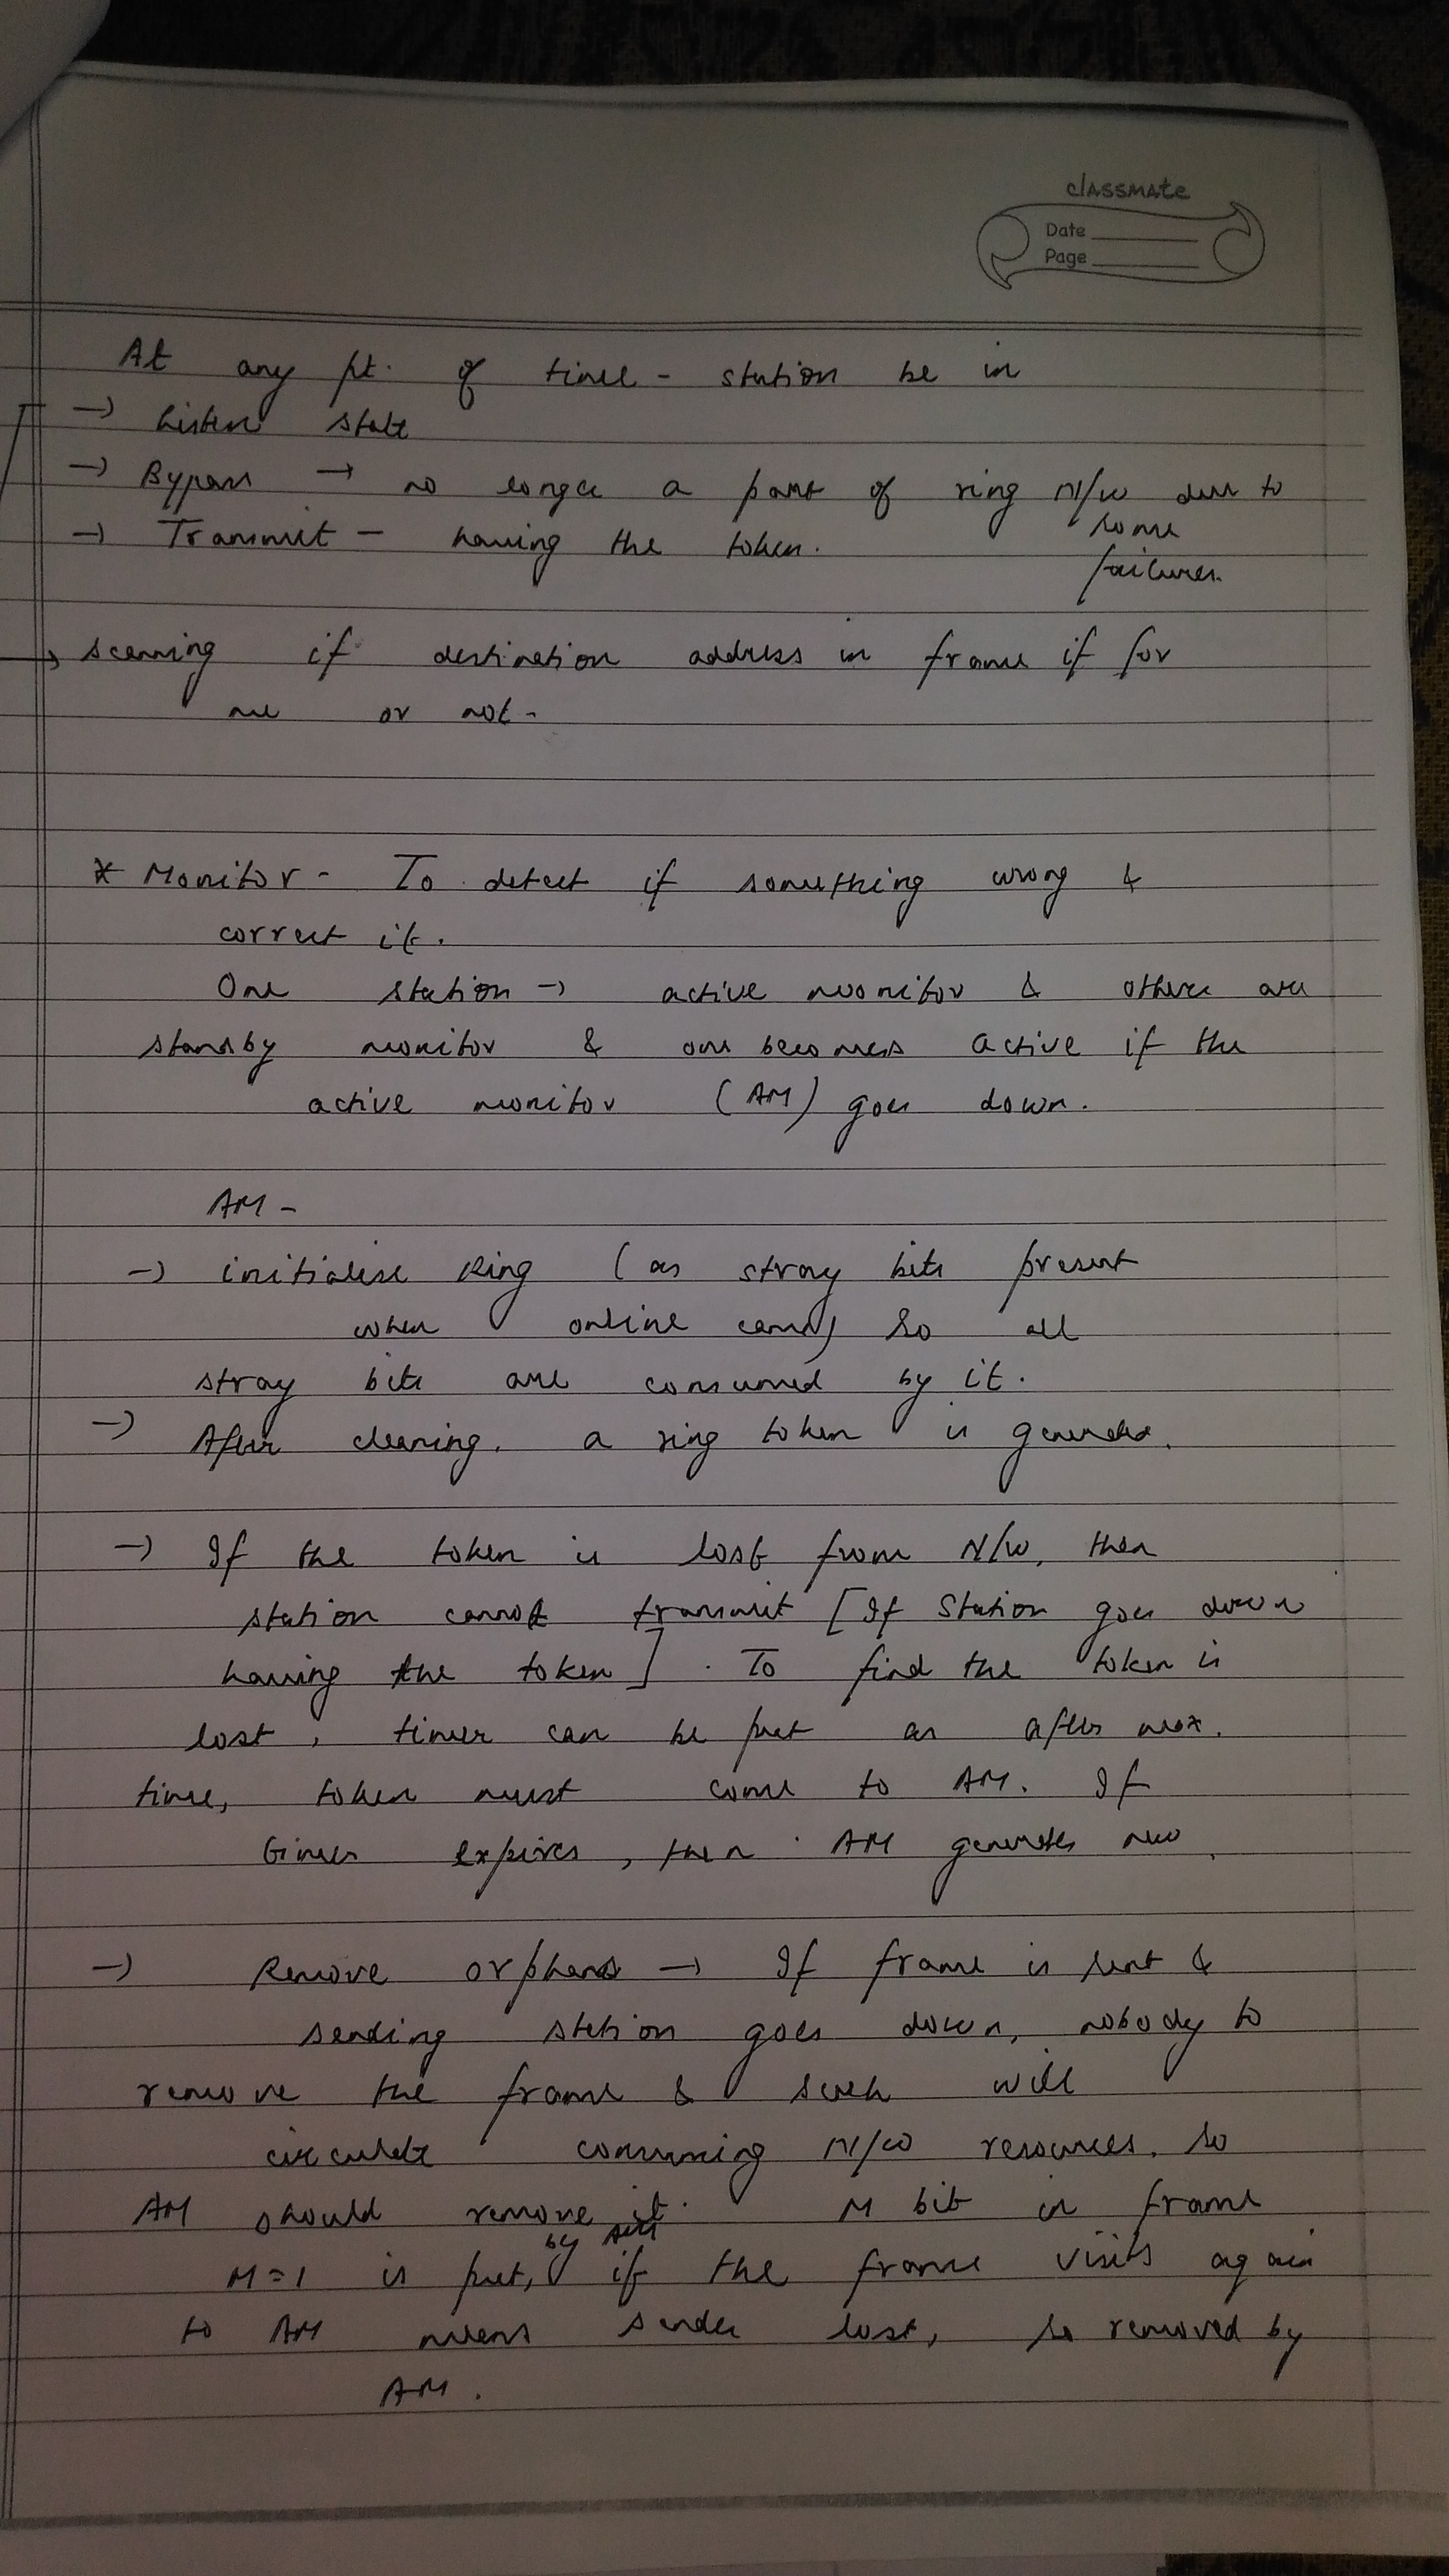 classmate
Date
Page
At any pt. of time - station be in
→ Listen state
→ Bypass → no longer a part of ring N/w due to
some
failures.
→ Transmit - having the token.
→ scanning if destination address in frame if for
me or not.
* Monitor - To detect if something wrong &
correct it.
One station → active monitor & others are
standby monitor & one becomes active if the
active monitor (AM) goes down.
AM -
→ initialise Ring (as stray bits present
when online came) so all
stray bits are consumed by it.
→ After cleaning, a ring token is generated.
→ If the token is lost from N/w, then
station cannot transmit [If Station goes down
having the token]. To find the token is
lost, timer can be put as after max.
time, token must come to AM. If
timer expires, then AM generates new.
→ Remove orphans → If frame is sent &
sending station goes down, nobody to
remove the frame & such will
circulate consuming N/w resources. So
AM should remove it. M bit in frame
M=1 is put, by AM if the frame visits again
to AM means sender lost, so removed by
AM.